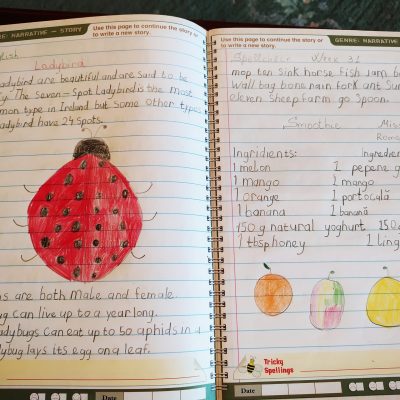 RE: NARRATIVE – STORY
Use this page to continue the story or
to write a new story.
lish
Ladybird
adybird are beautiful and are said to be
The Seven-Spot Ladybird is the most
mon type in Ireland but some other types
adybird have 24 Spots.
s are both Male and female.
ug can live up to a year long.
adybugs can eat up to 50 aphids in a
dybug lays its egg on a leaf.
Date
Use this page to continue the story or
to write a new story.
GENRE: NARRATIVE
Week 31
mop ten Sink horse fish jam b
wall bag bone rain fork ant Su
eleven Sheep farm go Spoon.
Smoothie
Ingridients:
1 melon
1 mango
1 orange
1 banana
150 g natural yoghurt
1 tbsp honey
Roma
Ingredien
1 pepene g
1 mango
1 portocală
1 banană
150g
1 ling
Tricky
Spellings
Date